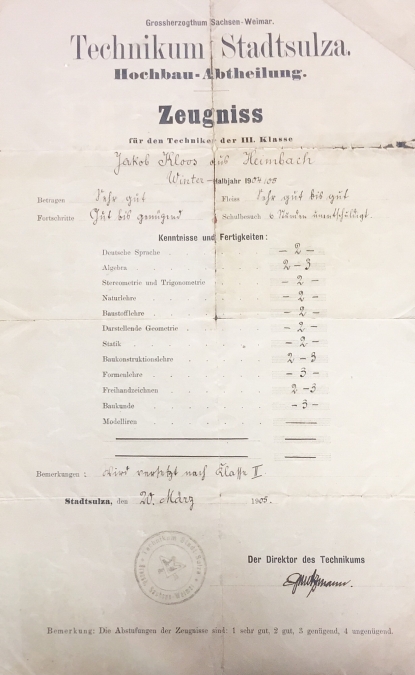 Grossherzogthum Sachsen-Weimar.
Technikum Stadtsulza.
Hochbau-Abtheilung.
Zeugniss
für den Techniker der III. Klasse
Jakob Kloos aus Heimbach
Winter-Halbjahr 1904/05
Betragen Sehr gut Fleiss Sehr gut bis gut
Fortschritte Gut bis genügend Schulbesuch 6 Stunden unentschuldigt
Kenntnisse und Fertigkeiten:
Deutsche Sprache – 2 –
Algebra 2 – 3
Stereometrie und Trigonometrie – 2 –
Naturlehre – 2 –
Baustofflehre – 2 –
Darstellende Geometrie – 2 –
Statik – 2 –
Baukonstruktionslehre 2 – 3
Formenlehre – 3 –
Freihandzeichnen 2 – 3
Baukunde – 3 –
Modelliren —
Bemerkungen: Wird versetzt nach Klasse II
Stadtsulza, den 20. März 1905.
Technikum Stadt Sulza
Sachsen-Weimar
Der Direktor des Technikums
Bemerkung: Die Abstufungen der Zeugnisse sind: 1 sehr gut, 2 gut, 3 genügend, 4 ungenügend.